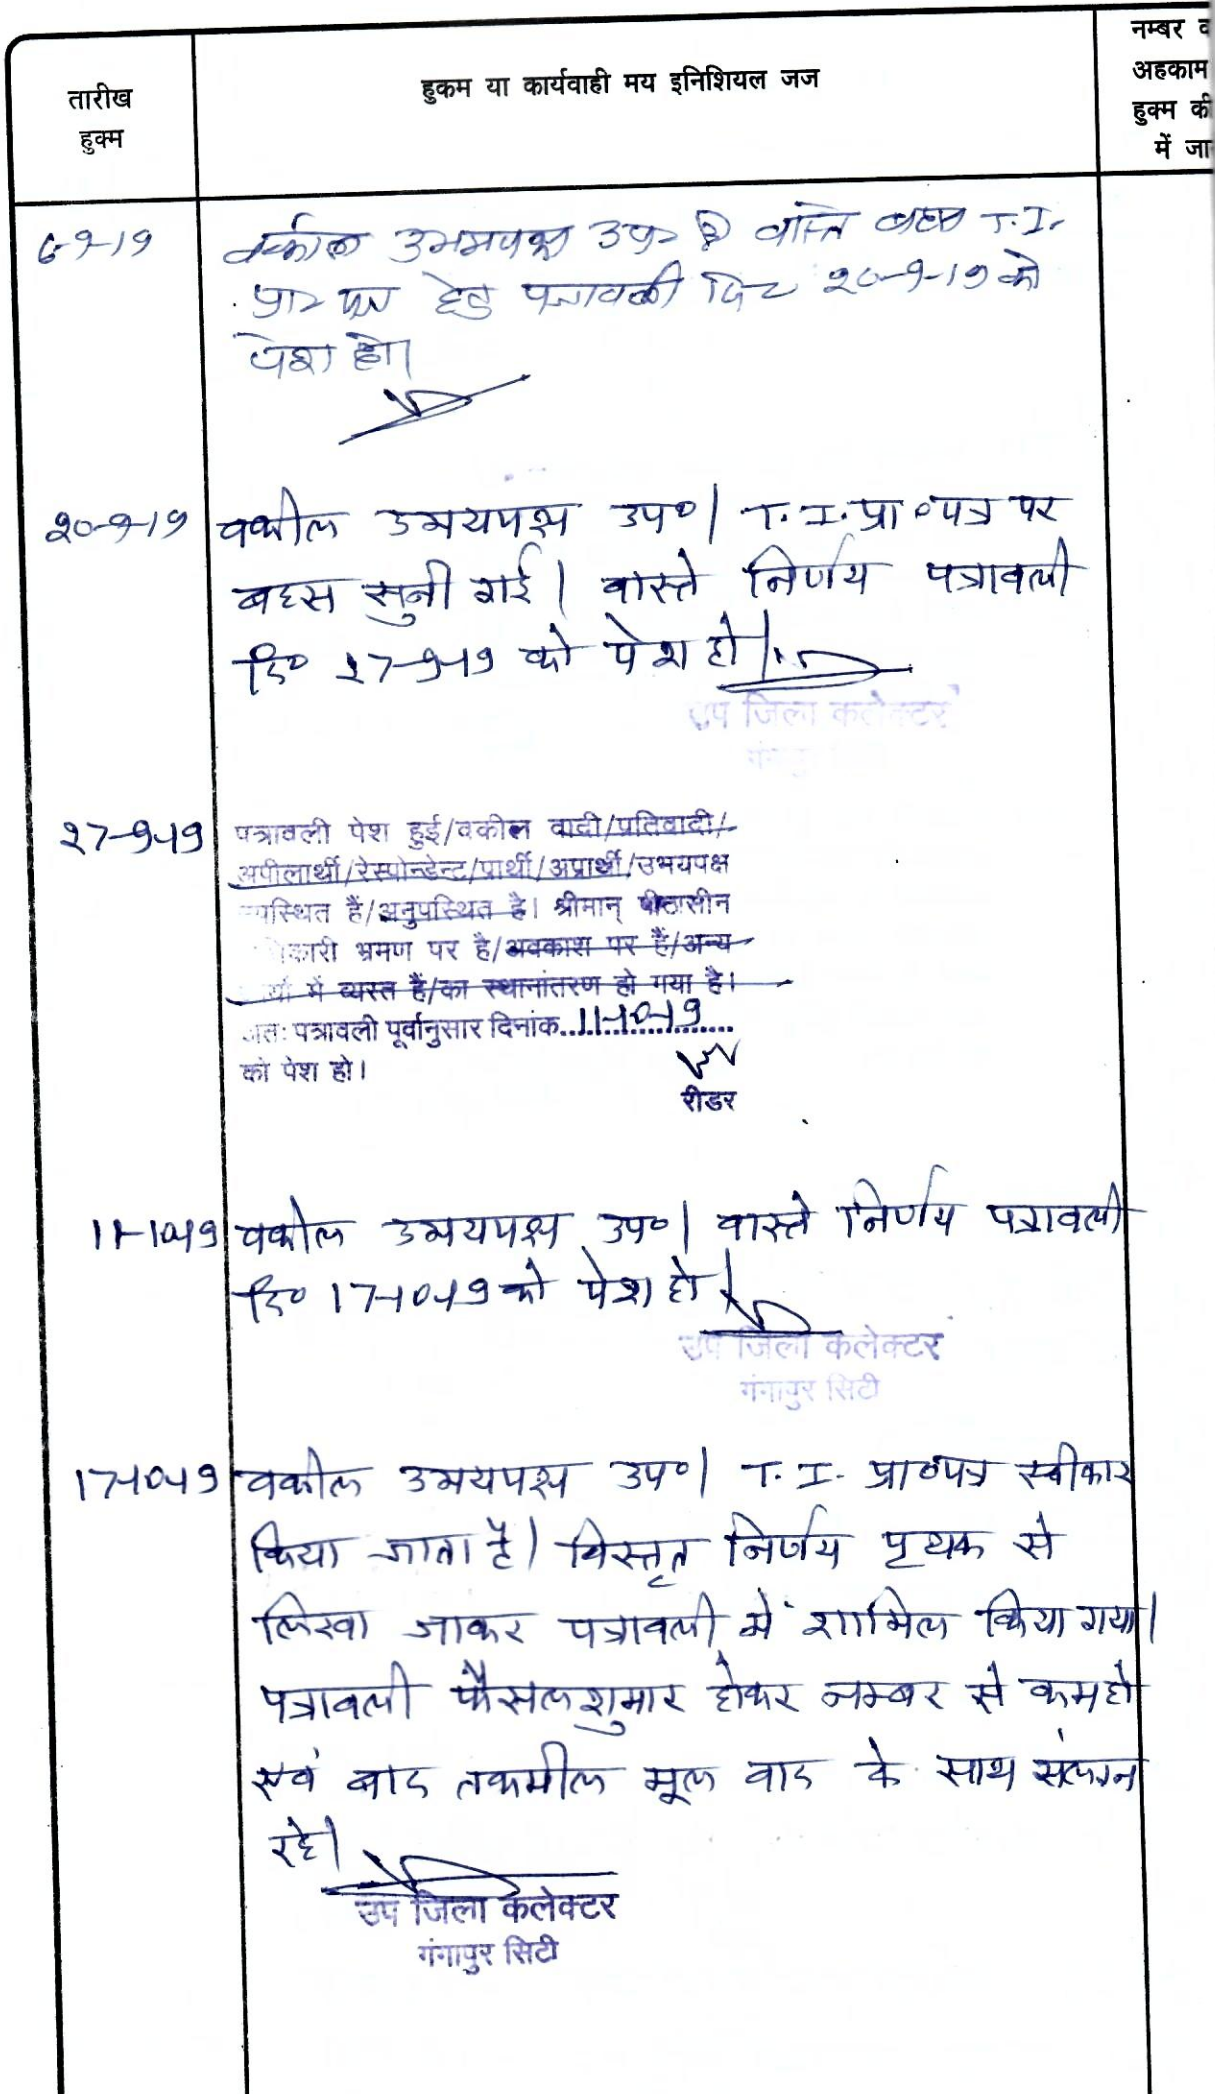 तारीख
हुक्म
हुकम या कार्यवाही मय इनिशियल जज
नम्बर व
अहकाम
हुक्म की
में जा
6-9-19
वकील उभयपक्ष उप० वास्ते बहस T.I.
प्रा० पत्र हेतु पत्रावली दि० 20-9-19 को
पेश हो।
20-9-19
वकील उभयपक्ष उप०। T.I. प्रा०पत्र पर
बहस सुनी गई। वास्ते निर्णय पत्रावली
दि० 27-9-19 को पेश हो।
उप जिला कलेक्टर
27-9-19
पत्रावली पेश हुई/वकील वादी/प्रतिवादी/
अपीलार्थी/रेस्पोन्डेन्ट/प्रार्थी/अप्रार्थी/उभयपक्ष
पस्थित हैं/अनुपस्थित है। श्रीमान् पीठासीन
कारी भ्रमण पर है/अवकाश पर हैं/अन्य
र्यो में व्यस्त हैं/का स्थानांतरण हो गया है।
अतः पत्रावली पूर्वानुसार दिनांक..11-10-19......
को पेश हो।
रीडर
11-10-19
वकील उभयपक्ष उप०। वास्ते निर्णय पत्रावली
दि० 17-10-19 को पेश हो।
उप जिला कलेक्टर
गंगापुर सिटी
17-10-19
वकील उभयपक्ष उप०। T.I. प्रा०पत्र स्वीकार
किया जाता है। विस्तृत निर्णय पृथक से
लिखा जाकर पत्रावली में शामिल किया गया।
पत्रावली फैसलशुमार होकर नम्बर से कम हो
एवं बाद तकमील मूल वाद के साथ संलग्न
रहे।
उप जिला कलेक्टर
गंगापुर सिटी